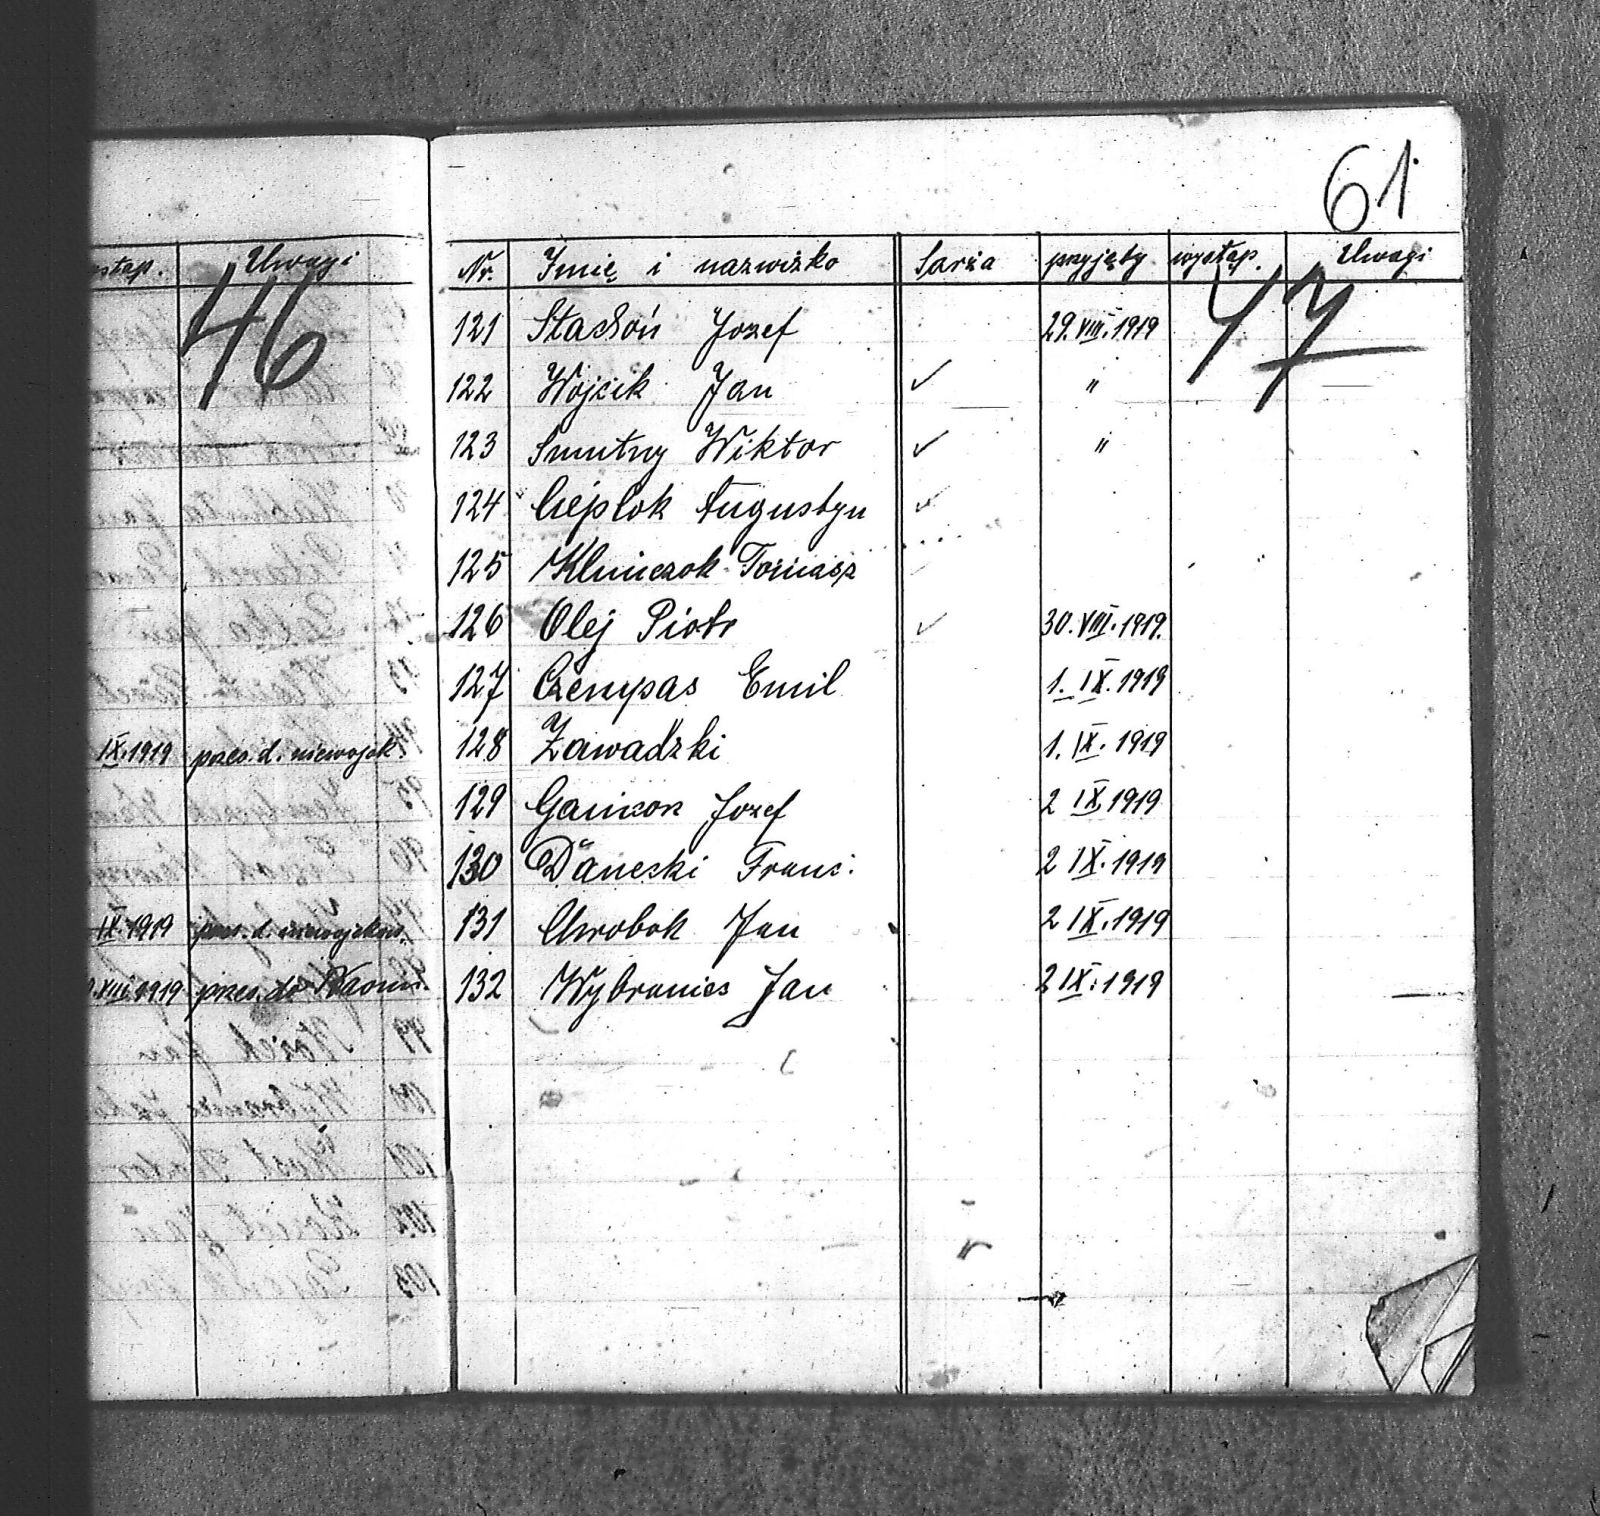 61
ystąp. Uwagi
46
IX.1919 przes. d. niewojsk.
IX.1919 przes. d. niewojskow.
XIII.1919 przes. do
Nr. Imię i nazwizko Sarża przyjęty wystąp. Uwagi
47
121 Stachoń Jozef 29.VIII.1919
122 Wójcik Jan ✓ "
123 Smutny Wiktor ✓ "
124 Cieplok Augustyn ✓
125 Klimczok Tomasz
126 Olej Piotr ✓ 30.VIII.1919.
127 Czempas Emil 1. IX. 1919
128 Zawadzki 1. IX. 1919
129 Jozef 2 IX 1919
130 Daneski Franc. 2 IX. 1919
131 Chrobok Jan 2 IX. 1919
132 Wybraniec Jan 2 IX. 1919